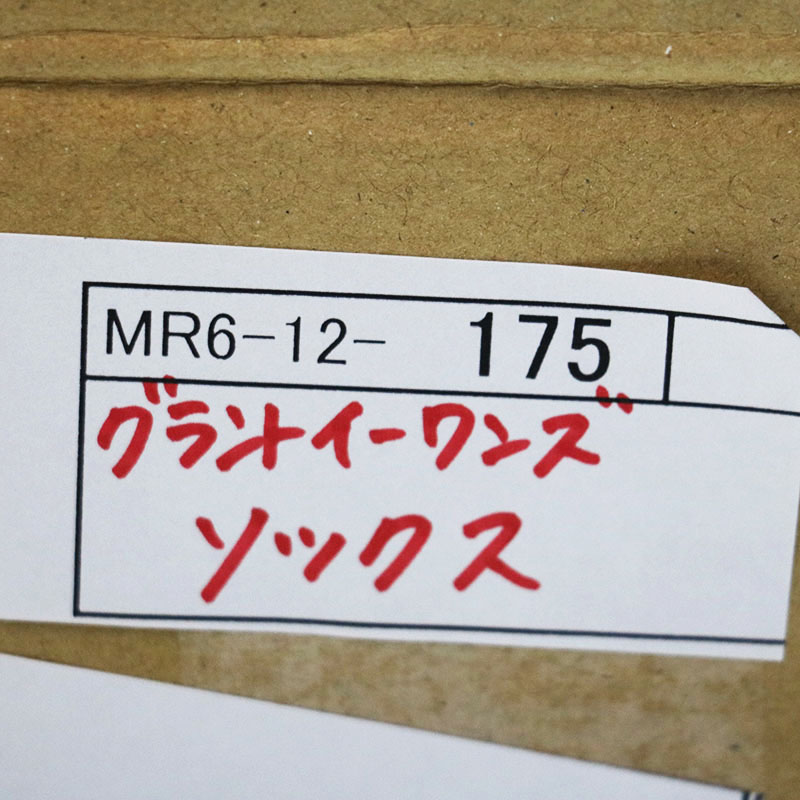 MR6-12- 175
グラントイーワンズ
ソックス